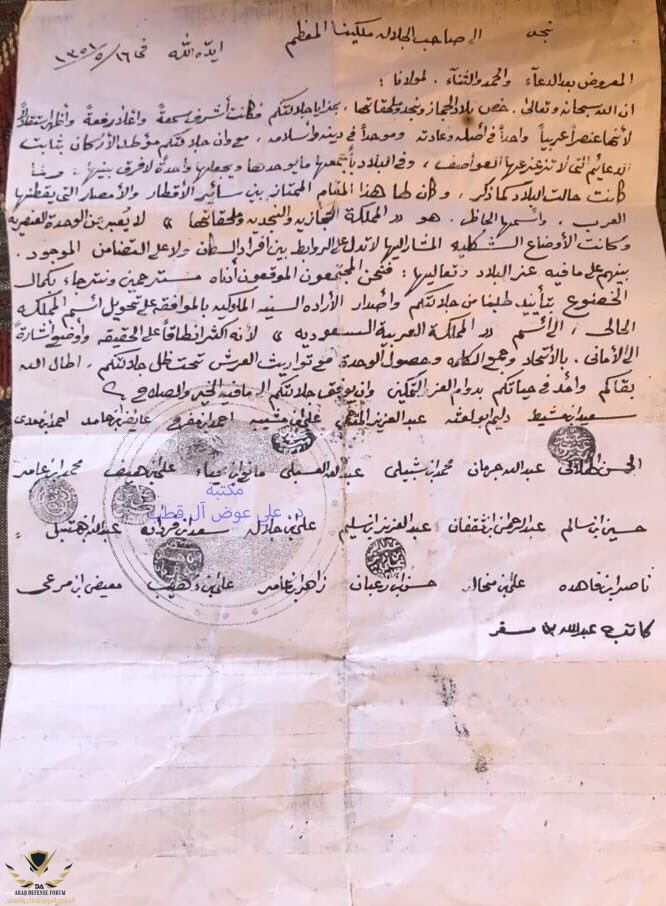 نجد الى صاحب الجلاله ملكينا المعظم
ايده الله فى ١٦/٥/١٣٥١
المعروض بعد الدعآء والحمد والثنآء . لمولانا :
ان الله سبحانه وتعالى . خص بلاد الحجاز ونجد وملحقاتها ، بمزايا جلالتكم فكانت أشرف سمعةً وأعلا رفعةً وأظهر إستقلالاً
لأنها عنصراً عربياً واحداً في أصله وعادته وموحداً في دينه وإسلامه . مع وان جلالتكم مؤطد الأركان بثابت
الدعائم التي لا تزعزعها العواصف ، وفى البلاد يجمعها ما يوحدها ويجعلها واحدةً لا فرق بينها ،
كانت حالت البلاد كما ذكر ، وكان لها هذا المقام الممتاز بين سائر الأقطار والأمصار التي يقطنها
العرب ، وائسمها الحاظر . هو « المملكة الحجازية والنجديه وملحقاتها » لا يعبر عن الوحدة العنصريه
وكانت الأوضاع الشكليه المشار اليها لا تدل على الروابط بين أفراد السكان ولا على التضامن الموجود .
بينهم على ما فيه عز البلاد وتعاليها : فنحن المجتمعون الموقعون أدناه مسترحمين ونترجاء بكمال
الخضوع بتأييد طلبنا من جلالتكم وأصدار الأراده السنيه الملوكيه بالموافقه على تحويل ائسم المملكه
الحالى ، الى ائسم « المملكة العربية السسعوديه » لأنه اكثر انطاقاً على الحقيقه وأوضح أشارةً
الى الأمانى . بالأتحاد وجمع الكلمه وحصول الوحدة مع توارث العرش تحت ظل جلالتكم . اطال الله
بقاكم وأمد في حياتكم بدوام العز والتمكين وان يوفق جلالتكم الى ما فيه الخير والصلاح
سعيد ابن مشيط دليم ابو لعثه عبد العزيز المتحمي علي ابن مشبيه احمد ابن مفرح عايض ابن حامد احمد ابن معدي
الحسن عبد الله جرمان محمد ابن شبيلي عبد الله العسبلى مانع ابن علي ابن هيف محمد ابن عامر
حسين ابن سالم عبد الرحمن ابن ثقفان عبد العزيز ابن سليم علي ابن جلال سعد ابن عبد الله ابن هتيل
ناصر ابن فاهده علي ابن منحاز حسن ابن رعبان زاهر ابن عامر علي ابن معيض ابن مرعي
كاتبه عبد الله بن مسفر
مكتبة
د. علي عوض آل قطب
DA
ARAB DEFENSE FORUM